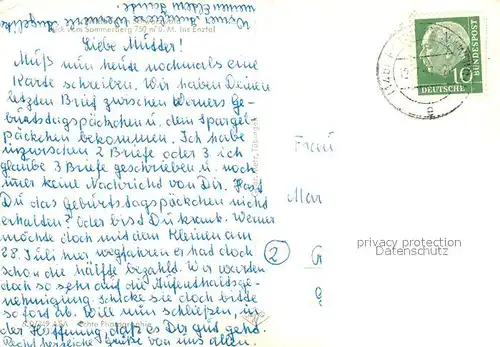 Blick vom Sommerberg 750 m ü. M. ins Enztal
Liebe Mutter!
Muß nun heute nochmals eine
Karte schreiben. Wir haben Deinen
letzten Brief zwischen Werners Ge-
burtstagspäckchen u. dem Spargel-
päckchen bekommen. Ich habe
inzwischen 2 Briefe oder 3 ich
glaube 3 Briefe geschrieben u. noch
immer keine Nachricht von Dir. Hast
Du das Geburtstagspäckchen nicht
erhalten? Oder bist Du krank. Werner
möchte doch mit dem Kleinen am
28. Juli hier wegfahren er hat doch
schon die Hälfte bezahlt. Wir warten
doch so sehr auf die Aufenthaltsge-
nehmigung. Schicke sie doch bitte
sofort ab. Will nun schließen, in
der Hoffnung, daß es Dir gut geht.
Recht herzliche Grüße von uns allen.
Echte Photographie
Tübingen
DEUTSCHE
BUNDESPOST
10
Frau
Mar
2
privacy protection
Datenschutz